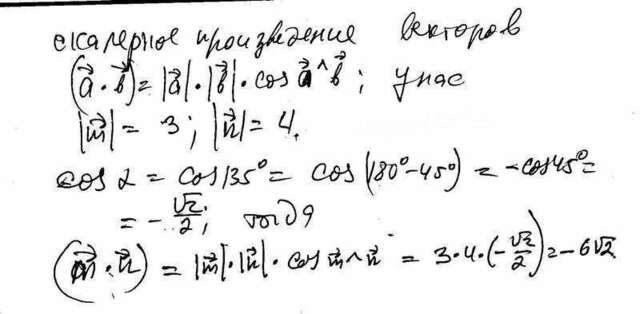 скалярное произведение векторов
(a⃗·b⃗)=|a⃗|·|b⃗|·cos a⃗^b⃗; у нас
|m⃗|= 3; |n⃗|=4.
cos α = cos135°= cos(180°-45°) = -cos45°=
= -√2/2; тогда
(m⃗·n⃗) = |m⃗|·|n⃗|·cos m⃗^n⃗ = 3·4·(-√2/2)=-6√2